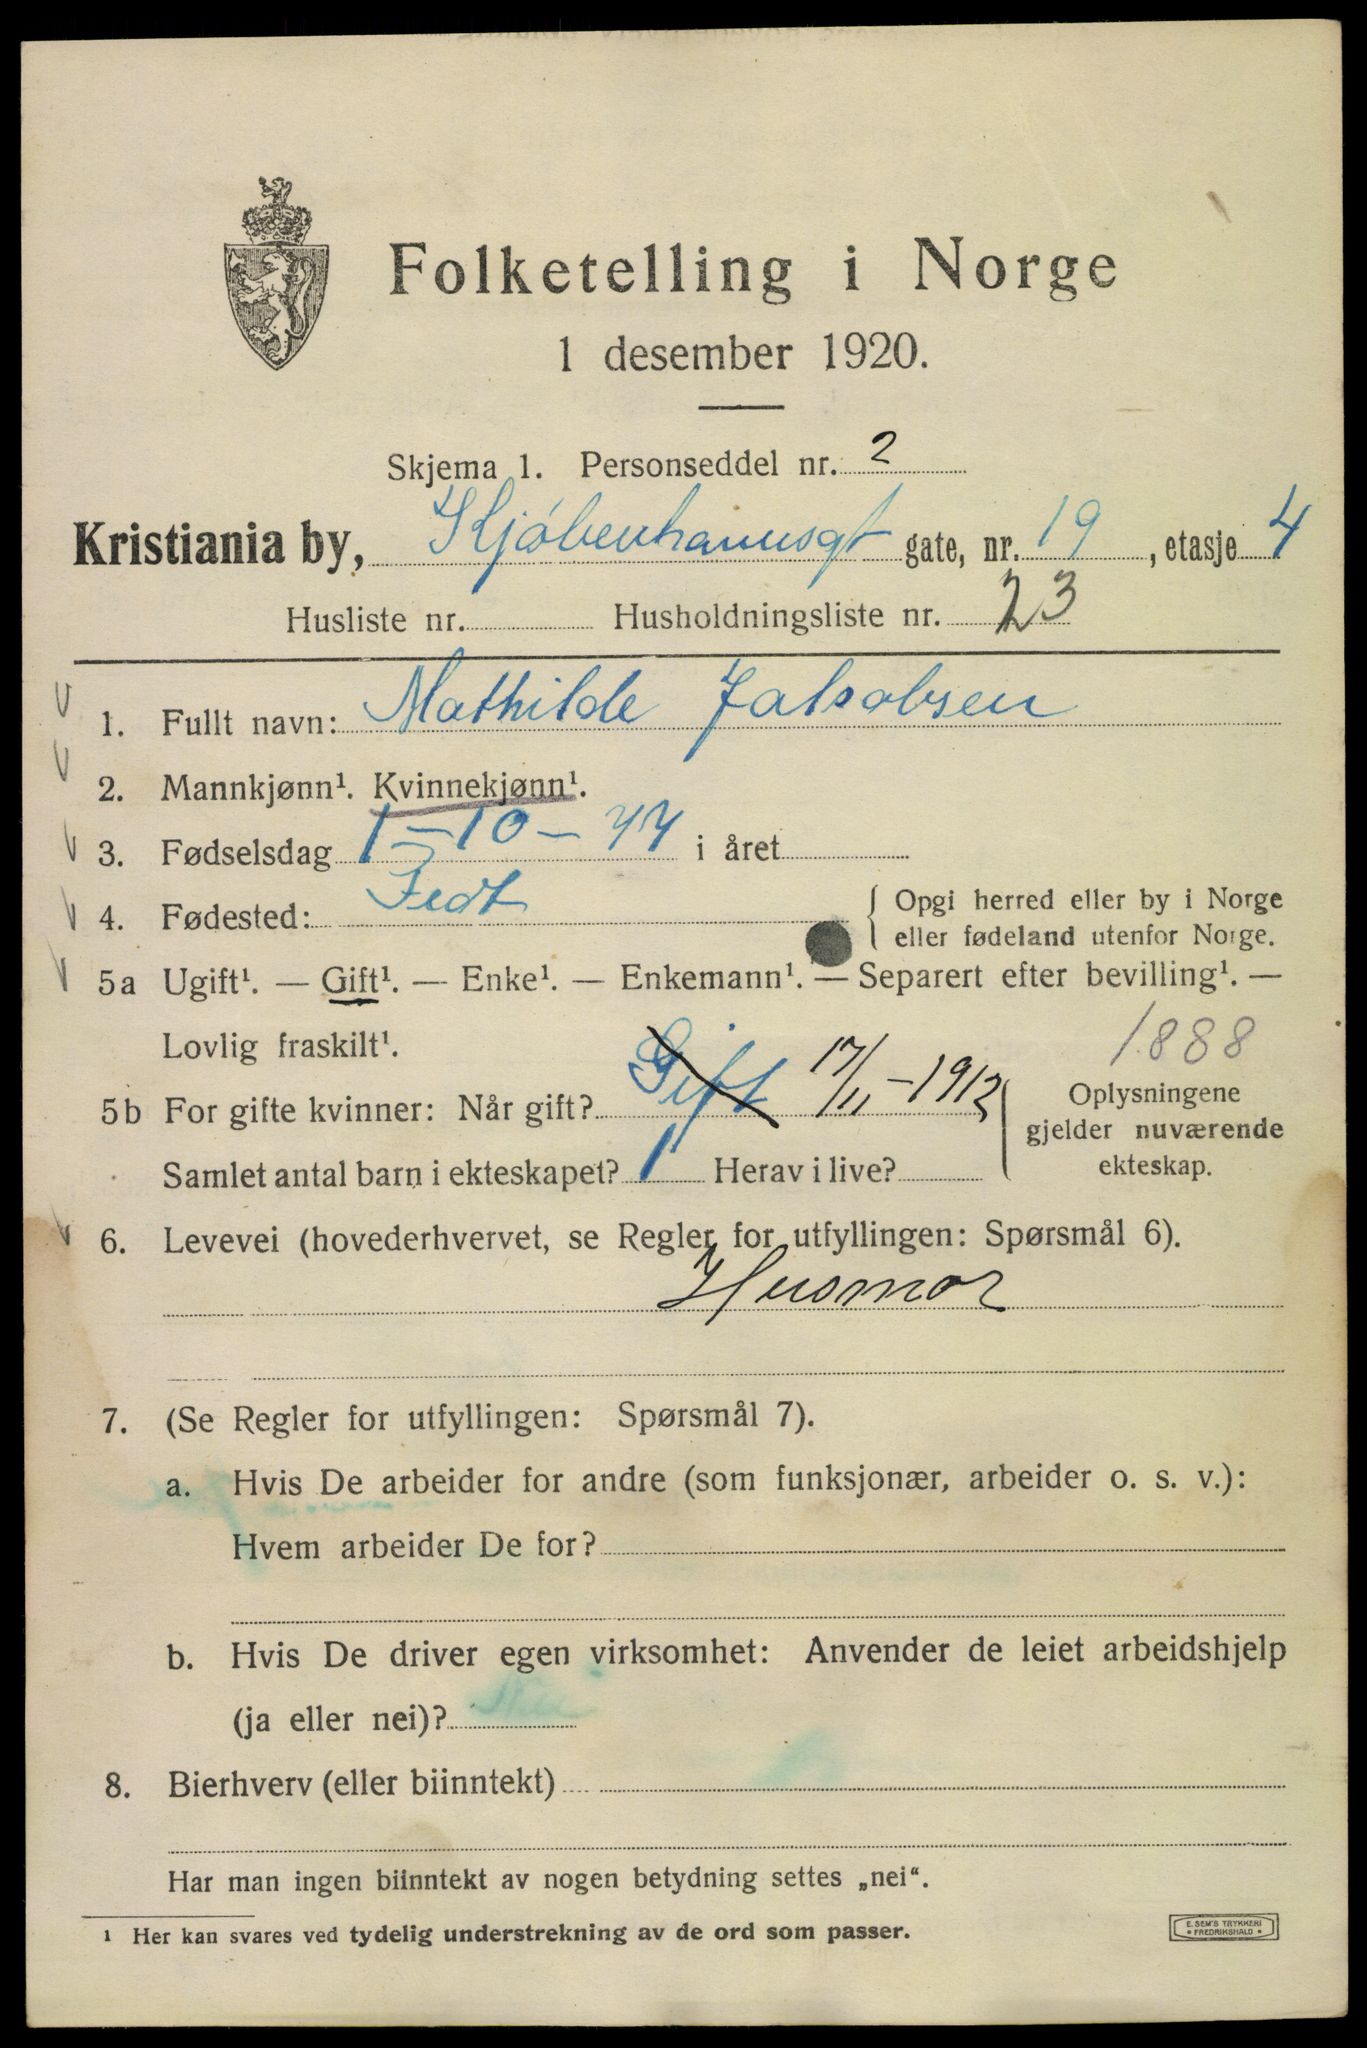 Folketelling i Norge
1 desember 1920.
Skjema 1. Personseddel nr. 2
Kristiania by, Kjøbenhavnsgt gate, nr. 19, etasje 4
Husliste nr. Husholdningsliste nr. 23
1. Fullt navn: Mathilde Jakobsen
2. Mannkjønn¹. Kvinnekjønn¹.
3. Fødselsdag 1-10-77 i året
4. Fødested: Fedt
{ Opgi herred eller by i Norge
eller fødeland utenfor Norge.
5a Ugift¹. — Gift¹. — Enke¹. — Enkemann¹. — Separert efter bevilling¹. —
Lovlig fraskilt¹.
1888
5b For gifte kvinner: Når gift? Gift 17/11-1912
{ Oplysningene
gjelder nuværende
ekteskap.
Samlet antal barn i ekteskapet? 1 Herav i live?
6. Levevei (hovederhvervet, se Regler for utfyllingen: Spørsmål 6).
Husmor
7. (Se Regler for utfyllingen: Spørsmål 7).
a. Hvis De arbeider for andre (som funksjonær, arbeider o. s. v.):
Hvem arbeider De for?
b. Hvis De driver egen virksomhet: Anvender de leiet arbeidshjelp
(ja eller nei)? Nei
8. Bierhverv (eller biinntekt)
Har man ingen biinntekt av nogen betydning settes „nei“.
¹ Her kan svares ved tydelig understrekning av de ord som passer.
E. SEM'S TRYKKERI
• FREDRIKSHALD •